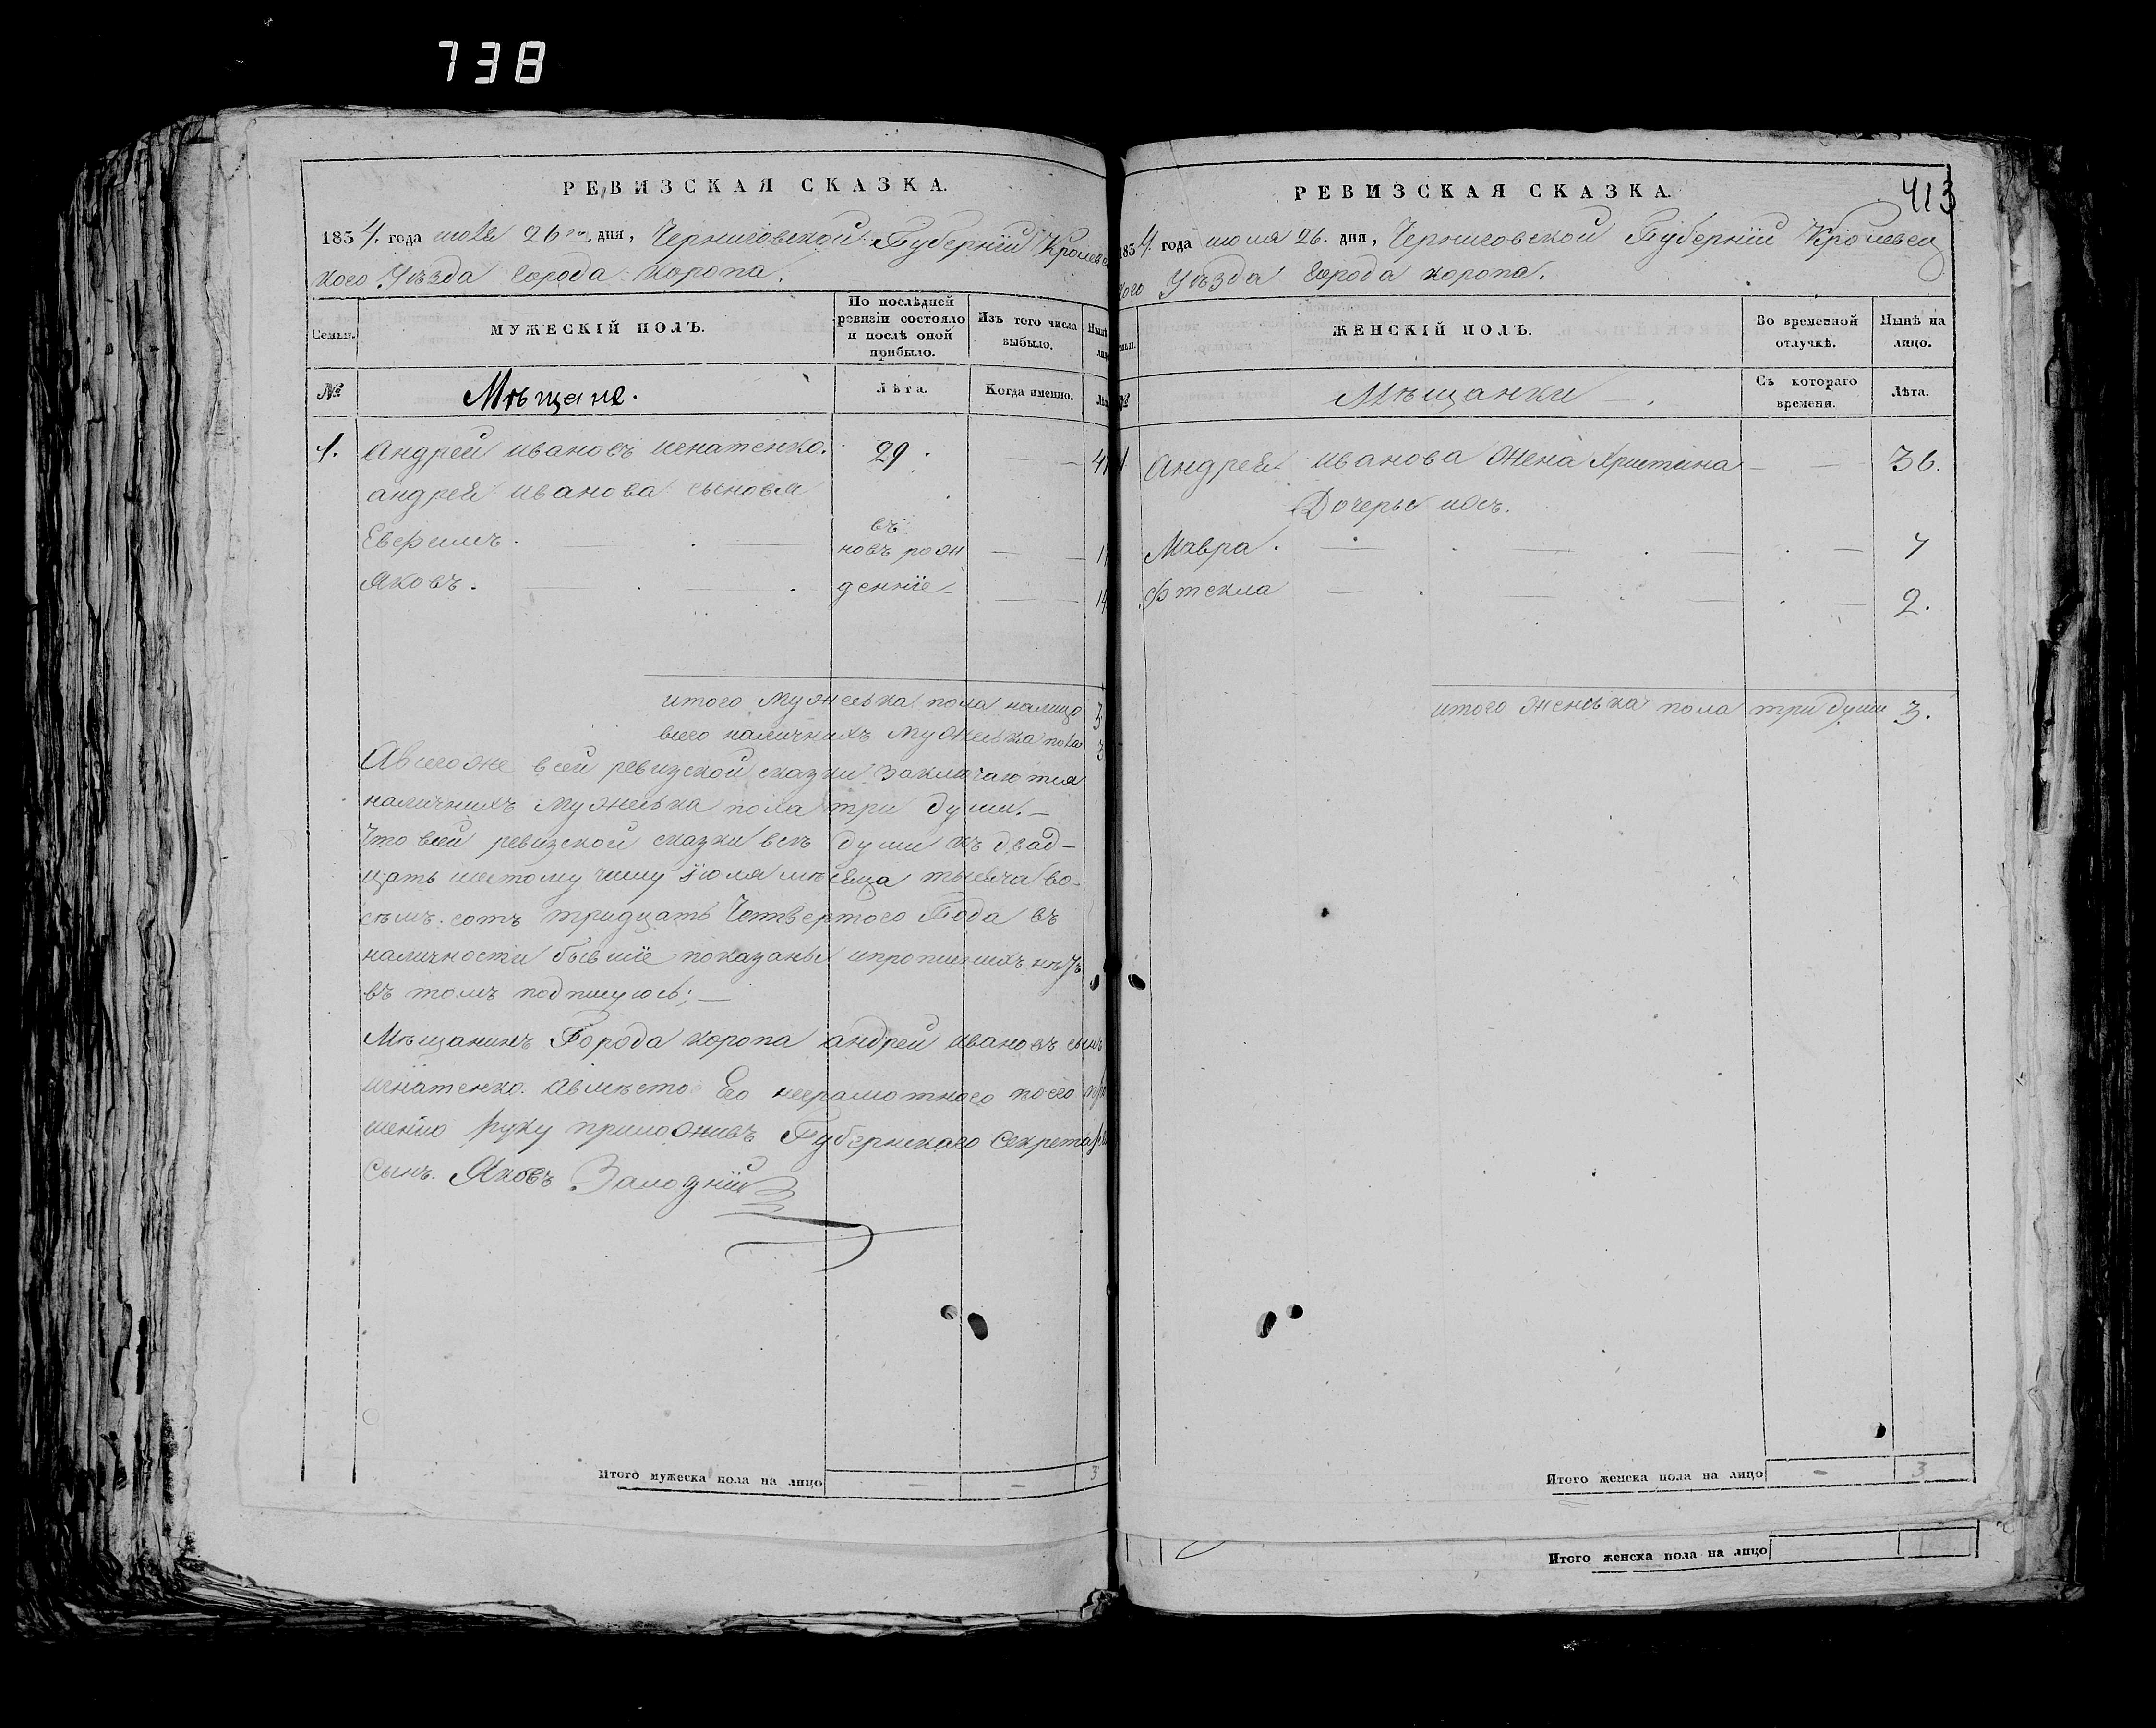 738
РЕВИЗСКАЯ СКАЗКА.
1834. года июля 26го дня, Черниговской Губернїи Кролевец
кого Уѣзда города коропа.
Семьи.
МУЖЕСКІЙ ПОЛЪ.
По послѣдней ревизіи состояло и послѣ оной прибыло.
Изъ того числа выбыло.
Нынѣ
№
Мѣщане.
Лѣта.
Когда именно.
1. Андрей ивановъ игнатенко. 29. — 41
андрея иванова сыновья
Евфимъ. — въ новъ рож — 1
Яковъ. — денніе — 14
итого мужеска пола налицо 3
всего наличнихъ мужеска пола 3
Авсегоже в сей ревизской сказки заключаются
наличнихъ мужеска пола три души. —
Что всей ревизской сказки всѣ души къ двад-
цать шестому числу іюля мѣсяца тысяча во-
сѣмъ сотъ тридцать Четвертого Года въ
наличности бывшіе показаны ипрописнихъ нѣтъ
въ томъ подпишуюсь; —
Мѣщанинъ Города коропа андрей ивановъ сынъ
игнатенко. авмѣсто Его неграмотного поего про
шенію руку приложивъ Губернского Секретаря
Сынъ. Яковъ
Итого мужеска пола на лицо — — 3
413
РЕВИЗСКАЯ СКАЗКА.
1834 года июля 26. дня, Черниговской Губернїи Кролевец
кого Уѣзда города коропа.
ЖЕНСКІЙ ПОЛЪ.
Во временной отлучкѣ.
Нынѣ на лицо.
№
Мѣщанки —.
Съ котораго времени.
Лѣта.
1 Андрея иванова жена Христина — — 36.
Дочеры ихъ.
Мавра. — 7
Фтекла — 2.
итого женска пола три души 3.
Итого женска пола на лицо — 3
Итого женска пола на лицо